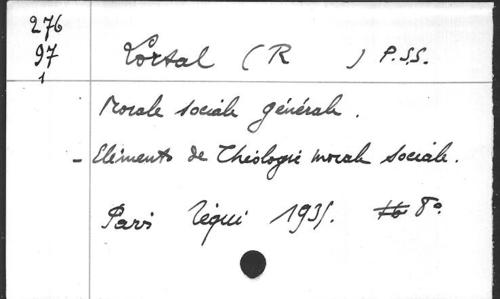 276
97
1
Lortal (R ) P.S.S.
Morale sociale générale.
- Eléments de Théologie morale sociale.
Paris Téqui 1935. 8°